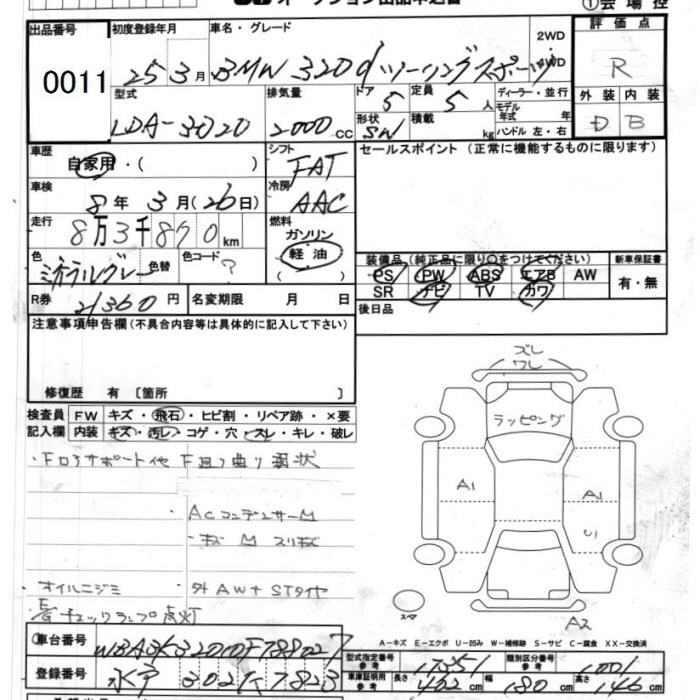 ①会場控
出品番号
0011
初度登録年月
25 3月
車名・グレード
BMW 320d ツーリングスポーツ
2WD
4WD
評価点
R
外装 内装
D B
型式
LDA-3D20
排気量
2000 cc
ドア
5
定員
5人
形状
SW
積載
kg
ディーラー・並行
モデル年式 年
ハンドル 左・右
車歴
自家用・( )
シフト
FAT
セールスポイント(正常に機能するものに限ります)
車検
8年 3月(26日)
冷房
AAC
走行
8万3千870km
燃料
ガソリン
軽油
( )
色
ミネラルグレー
色替
色コード
?
R券
21360円
名変期限 月 日
装備品(純正品に限り○をつけてください)
PS PW ABS エアB AW
SR ナビ TV カワ
新車保証書
有・無
後日品
注意事項申告欄(不具合内容等は具体的に記入して下さい)
修復歴 有〔箇所 〕
検査員記入欄
FW キズ・飛石・ヒビ割・リペア跡・×要
内装 キズ・汚レ・コゲ・穴・スレ・キレ・破レ
・Fロアサポート他 F廻り曲り現状
Acコンデンサー M
キズ M スリキズ
オイルニジミ
外AW+STタイヤ
チェックランプ点灯
ズレ
ワレ
ラッピング
A1
A1
U1
スペア
A2
A-キズ E-エクボ U-凹み W-補修跡 S-サビ C-腐食 XX-交換済
車台番号
WBA3K32010F788027
登録番号
水戸 302 7823
型式指定番号
参考
17351
類別区分番号
参考
1001
車庫証明用
参考
長さ 462cm
幅 180cm
高さ 146cm